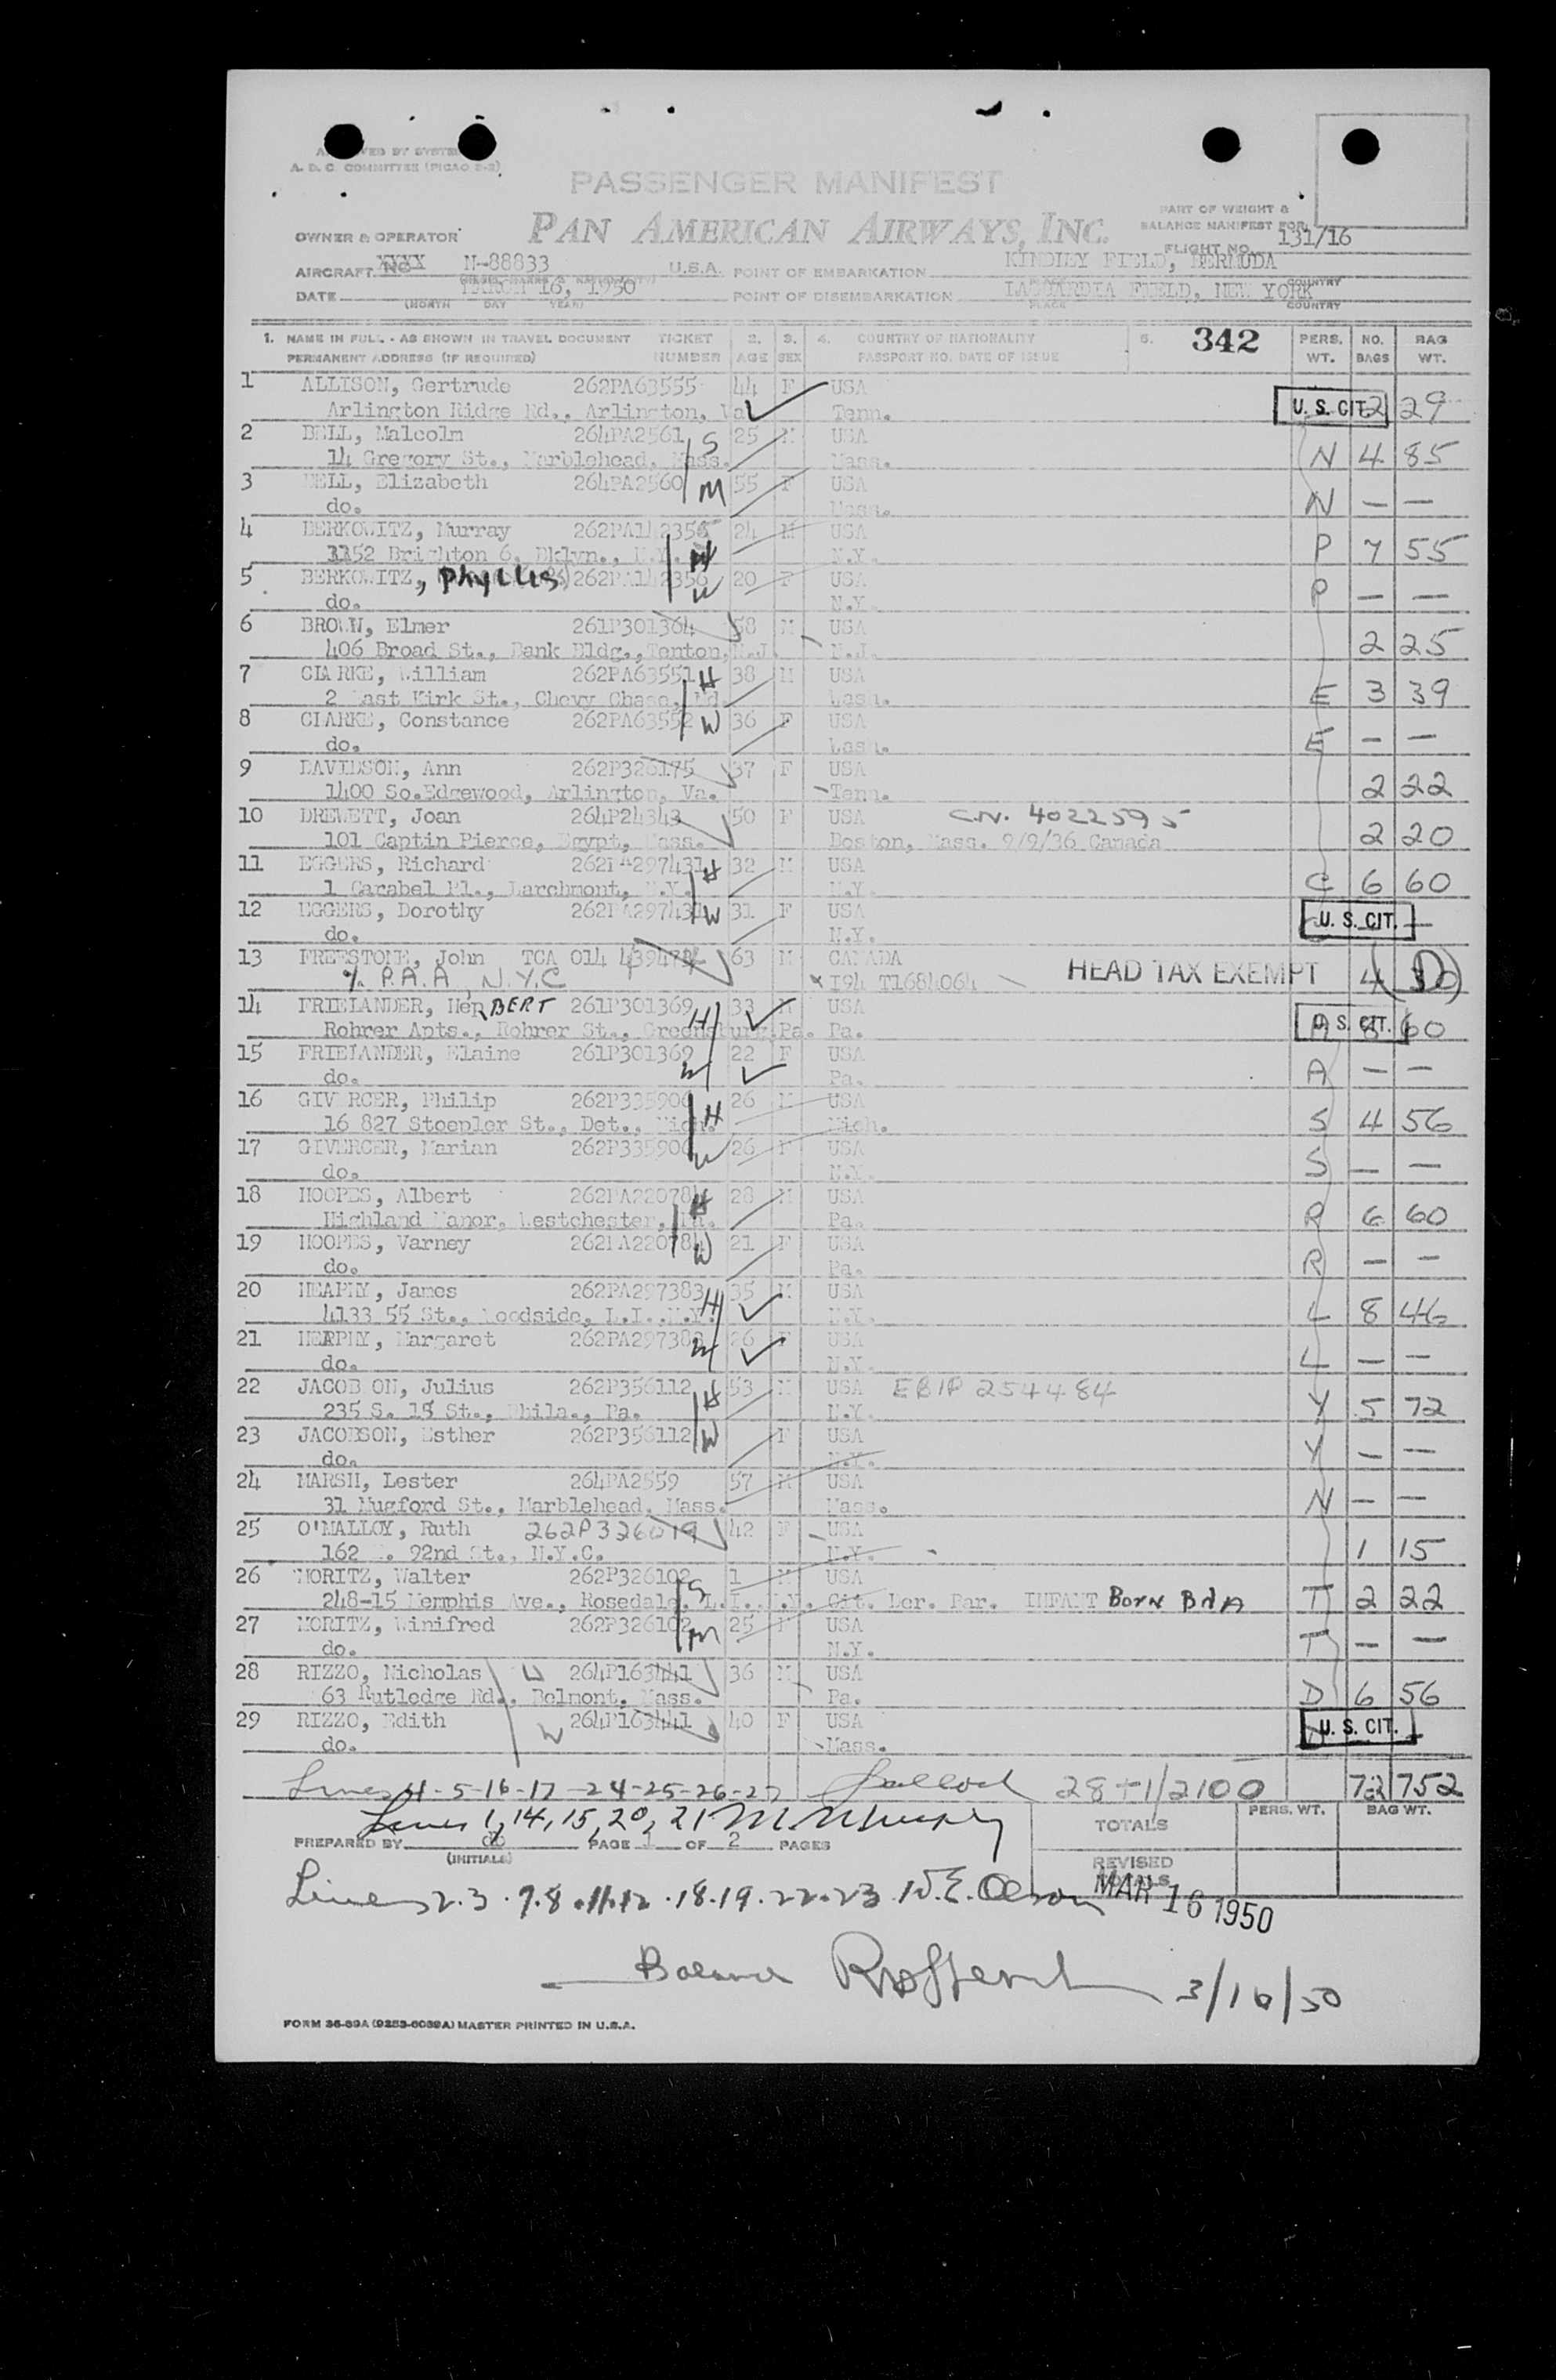 A. D. C. COMMITTEE (PICAO 2-2)
PASSENGER MANIFEST
PART OF WEIGHT &
BALANCE MANIFEST FOR
OWNER & OPERATOR PAN AMERICAN AIRWAYS, INC.
FLIGHT NO. 131/16
AIRCRAFT NO XXXX N-88833 U.S.A. POINT OF EMBARKATION KINDLEY FIELD, BERMUDA
DATE MARCH 16, 1950 POINT OF DISEMBARKATION LAGUARDIA FIELD, NEW YORK
(MONTH DAY YEAR) PLACE COUNTRY
1. NAME IN FULL - AS SHOWN IN TRAVEL DOCUMENT TICKET 2. 3. 4. COUNTRY OF NATIONALITY 5. 342 PERS. NO. BAG
PERMANENT ADDRESS (IF REQUIRED) NUMBER AGE SEX PASSPORT NO. DATE OF ISSUE WT. BAGS WT.
1 ALLISON, Gertrude 262PA63555 44 F USA
Arlington Ridge Rd., Arlington, Va Tenn. U. S. CIT. 2 29
2 BELL, Malcolm 264PA2561 S 25 M USA
14 Gregory St., Marblehead, Mass. Mass. N 4 85
3 BELL, Elizabeth 264PA2560 M 55 F USA
do. Mass. N — —
4 BERKOWITZ, Murray 24 M USA
3152 Brighton 6, Bklyn., N.Y. H N.Y. P 7 55
5 BERKOWITZ, Phyllis W 20 F USA
do. N.Y. P — —
6 BROWN, Elmer 261P301364 58 M USA
406 Broad St., Bank Bldg., Tenton, N.J. N.J. 2 25
7 CLARKE, William 262PA63551 H 38 M USA
2 East Kirk St., Chevy Chase, Md. Wash. E 3 39
8 CLARKE, Constance 262PA63552 W 36 F USA
do. Wash. E — —
9 DAVIDSON, Ann 262P326175 37 F USA
1400 So.Edgewood, Arlington, Va. Tenn. 2 22
10 DREWETT, Joan 264P24343 50 F USA C.N. 4022595
101 Captin Pierce, Egypt, Mass. Boston, Mass. 9/9/36 Canada 2 20
11 EGGERS, Richard 262PA297431 H 32 M USA
1 Carabel Pl., Larchmont, N.Y. N.Y. C 6 60
12 EGGERS, Dorothy W 31 F USA
do. N.Y. U. S. CIT. —
13 FREESTONE, John TCA 014 63 M CANADA
% P.A.A, N.Y.C I94 T1684064 HEAD TAX EXEMPT 4
14 FRIELANDER, HERBERT 261P301369 H 33 M USA
Rohrer Apts., Rohrer St., Greensburg Pa. Pa. U. S. CIT. 60
15 FRIELANDER, Elaine 261P301369 W 22 F USA
do. Pa. A — —
16 GIVERCER, Philip 262P335906 26 M USA
16 827 Stoepler St., Det., Mich. H Mich. S 4 56
17 GIVERCER, Marian 262P335906 W 26 F USA
do. N.Y. S — —
18 HOOPES, Albert 262PA220784 H 28 M USA
Highland Manor, Westchester, Pa. Pa. R 6 60
19 HOOPES, Varney 262PA220784 W 21 F USA
do. Pa. R — —
20 HEAPHY, James 262PA297383 H 35 M USA
4133 55 St., Woodside, L.I., N.Y. N.Y. L 8 46
21 HEAPHY, Margaret W 26 F USA
do. N.Y. L — —
22 JACOBSON, Julius 262P356112 H 53 M USA EBIP 254484
235 S. 15 St., Phila., Pa. N.Y. Y 5 72
23 JACOBSON, Esther 262P356112 W F USA
do. N.Y. Y — —
24 MARSH, Lester 264PA2559 57 M USA
31 Mugford St., Marblehead, Mass. Mass. N — —
25 O'MALLOY, Ruth 262P326019 42 F USA
162 . 92nd St., N.Y.C. N.Y. 1 15
26 MORITZ, Walter 262P326102 S 1 M USA
248-15 Memphis Ave., Rosedale, L.I., N.Y. Cit. Der. Par. INFANT BORN BDA T 2 22
27 MORITZ, Winifred 262P326102 M 25 F USA
do. N.Y. T — —
28 RIZZO, Nicholas 264P163441 36 M USA
63 Rutledge Rd., Belmont, Mass. Pa. D 6 56
29 RIZZO, Edith W 264P163441 40 F USA
do. Mass. U. S. CIT.
Lines 4-5-16-17-24-25-26-27 28+1/2100 72 752
Lines 1, 14, 15, 20, 21
TOTALS PERS. WT. BAG WT.
PREPARED BY PAGE 1 OF 2 PAGES
(INITIALS)
REVISED TOTALS
Lines 2.3.7.8.11.12.18.19.22.23 W.E. Olson
MAR 16 1950
Balance 3/16/50
FORM 36-89A (9253-6089A) MASTER PRINTED IN U.S.A.